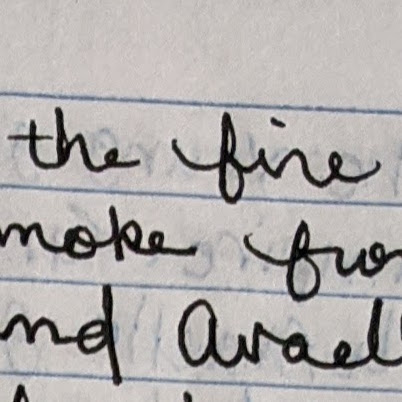 the fire
moke fro
nd Avael